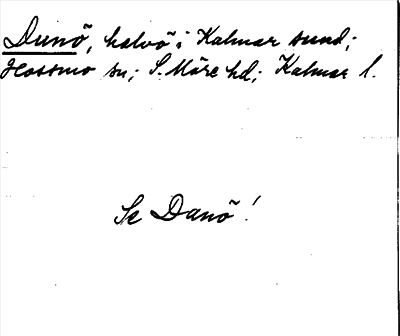 Dunö, halvö i Kalmar sund;
Hossmo sn; S. Möre hd; Kalmar l.
Se Danö!